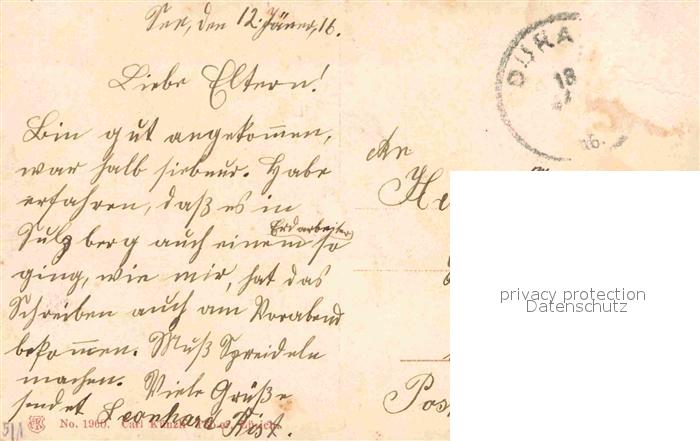 See, den 12. Jäner, 16.
Liebe Eltern!
Bin gut angekommen,
war halb siebenr. Habe
erfahren, daß es in
Sulzberg auch einem Erdarbeiter so
ging, wie mir, hat das
Schreiben auch am Vorabend
bekommen. Muß Spreideln
machen. Viele Grüße
sendet Leonhard
No. 1960. Carl Künzli
An
DURA
18
16.
Pos
privacy protection
Datenschutz